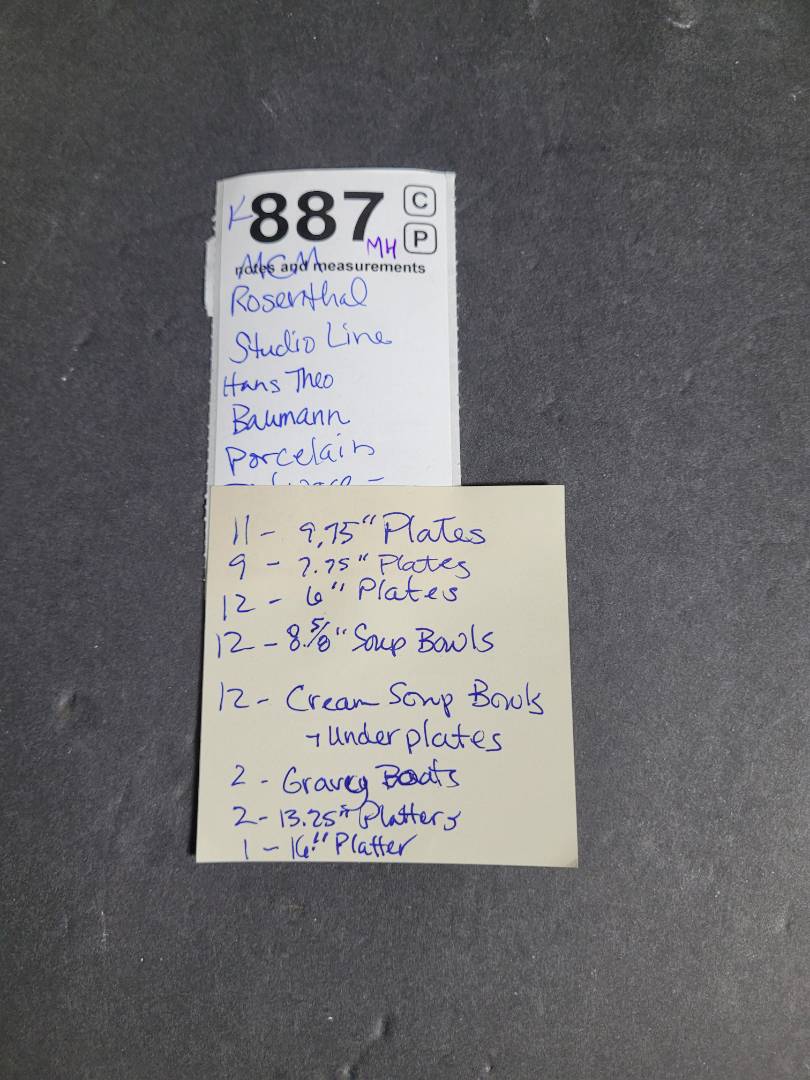 K887 C
MH P
MCM
notes and measurements
Rosenthal
Studio Line
Hans Theo
Baumann
Porcelain
11 - 9.75" Plates
9 - 7.75" Plates
12 - 6" Plates
12 - 8.5/8" Soup Bowls
12 - Cream Soup Bowls
+ Underplates
2 - Gravey Boats
2 - 13.25" Platters
1 - 16" Platter